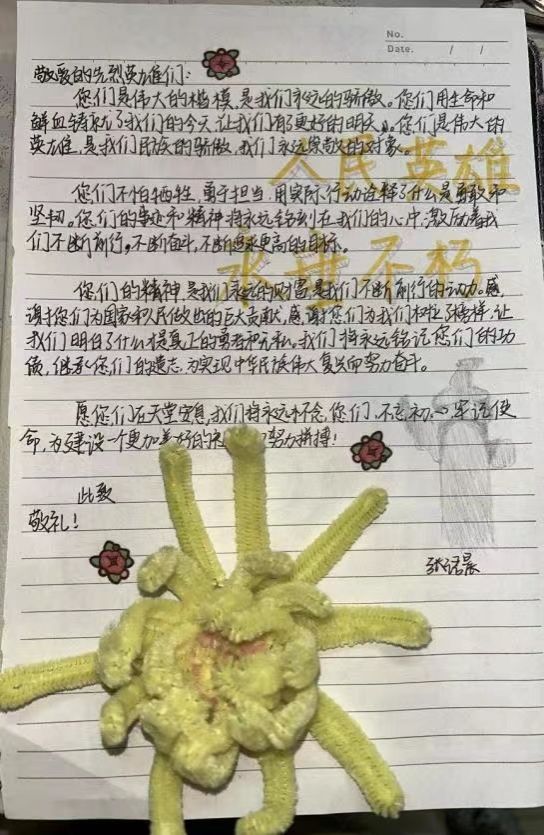 No.
Date. / /
敬爱的先烈英雄们:
您们是伟大的楷模,是我们永远的骄傲。您们用生命和
鲜血铸就了我们的今天,让我们有了更好的明天。您们是伟大的
英雄,是我们民族的骄傲,我们永远崇敬的对象。
人民英雄
您们不怕牺牲,勇于担当,用实际行动诠释了什么是勇敢和
坚韧。您们的事迹和精神将永远铭刻在我们的心中,激励着我
们不断前行。不断奋斗,不断追求更高的目标。
永垂不朽
您们的精神,是我们永远的财富,是我们不断前行的动力。感
谢您们为国家和人民做出的巨大贡献,感谢您们为我们树立了榜样,让
我们明白了什么是真正的勇者和无私。我们将永远铭记您们的功
绩,继承您们的遗志,为实现中华民族伟大复兴而努力奋斗。
愿您们在天堂安息,我们将永远怀念您们,不忘初心,牢记使
命,为建设一个更加美好的 努力拼搏!
此致
敬礼!
张诺晨